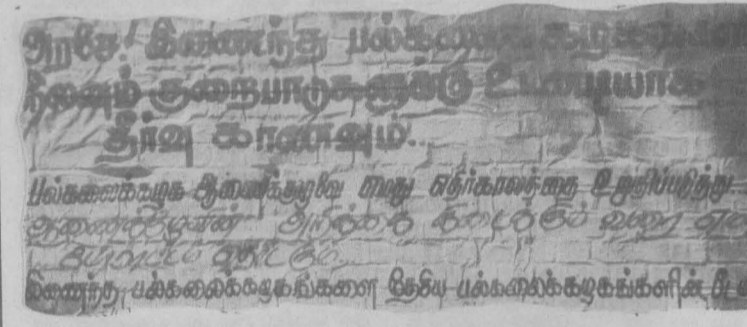 அரசே! இணைந்த பல்கலைக்கழகங்களில்
நிலவும் குறைபாடுகளுக்கு உடனடியாக
தீர்வு காணவும்...
பல்கலைக்கழக ஆணைக்குழுவே எமது எதிர்காலத்தை உறுதிப்படுத்து
ஆணைக்குழுவின் அறிக்கை கிடைக்கும் வரை
தொடரும்...
இணைந்த பல்கலைக்கழகங்களை தேசிய பல்கலைக்கழகங்களின்